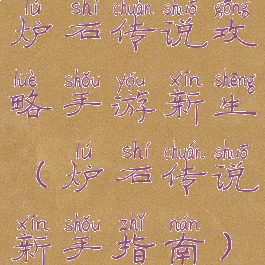 lú shí chuán shuō gōng
炉石传说攻
luè shǒu yóu xīn shēng
略手游新生
lú shí chuán shuō
（炉石传说
xīn shǒu zhǐ nán
新手指南）